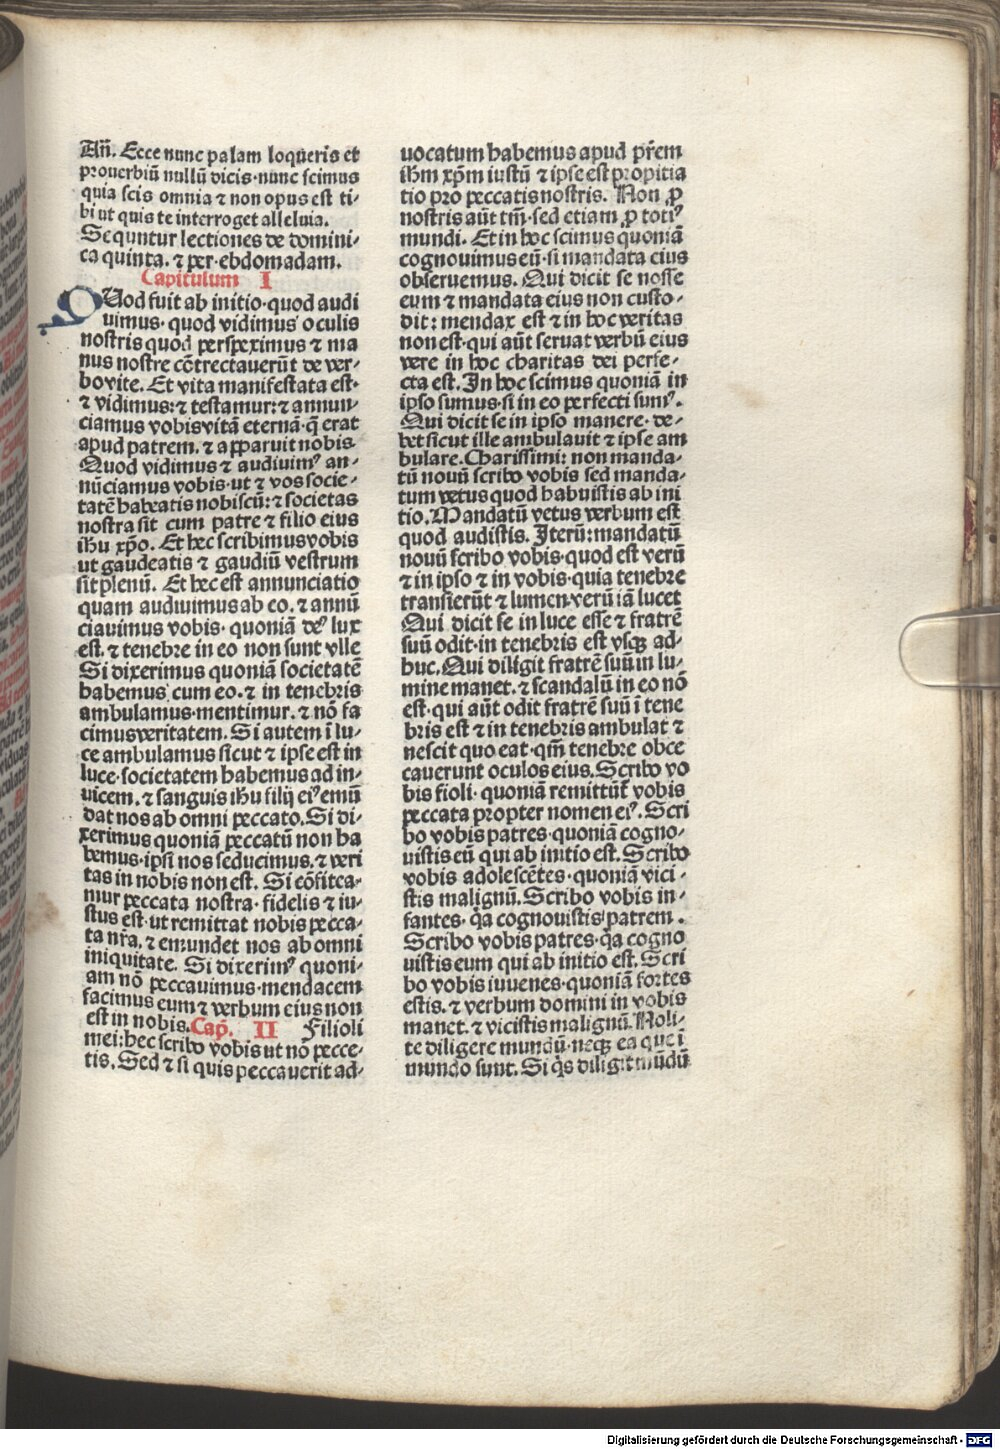 Añ. Ecce nunc palam loqueris et
prouerbiũ nullũ dicis·nunc scimus
quia scis omnia ⁊ non opus est ti⸗
bi ut quis te interroget alleluia.
Sequntur lectiones de domini⸗
ca quinta. ⁊ per·ebdomadam.
Capitulum I
QUod fuit ab initio·quod audi
uimus· quod vidimus oculis
nostris quod perspeximus ⁊ ma
nus nostre cõtrectauerũt de ver⸗
bo vite. Et vita manifestata est·
⁊ vidimus:⁊ testamur:⁊ annun⸗
ciamus vobis vitã eternã·q̃ erat
apud patrem. ⁊ apparuit nobis.
Quod vidimus ⁊ audiuimꝰ an⸗
nũciamus vobis·ut ⁊ vos socie⸗
tatẽ habeatis nobiscũ:⁊ societas
nostra sit cum patre ⁊ filio eius
ihũ xp̃o. Et hec scribimus vobis
ut gaudeatis ⁊ gaudiũ vestrum
sit plenũ. Et hec est annunciatio
quam audiuimus ab eo. ⁊ annũ
ciauimus vobis· quoniã deꝰ lux
est. ⁊ tenebre in eo non sunt vlle
Si dixerimus quoniã societatẽ
habemus cum eo. ⁊ in tenebris
ambulamus·mentimur. ⁊ nõ fa
cimus veritatem. Si autem ĩ lu⸗
ce ambulamus sicut ⁊ ipse est in
luce·societatem habemus ad in⸗
uicem. ⁊ sanguis ihũ filij eiꝰ emũ
dat nos ab omni peccato. Si di⸗
xerimus quoniã peccatũ non ha
bemus·ipsi nos seducimus. ⁊ veri
tas in nobis non est. Si cõfitea⸗
mur peccata nostra· fidelis ⁊ iu⸗
stus est·ut remittat nobis pecca⸗
ta nr̃a. ⁊ emundet nos ab omni
iniquitate. Si dixerimꝰ quoni⸗
am nõ peccauimus·mendacem
facimus eum ⁊ verbum eius non
est in nobis. Cap̃. II Filioli
mei:hec scribo vobis ut nõ pecce⸗
tis. Sed ⁊ si quis peccauerit ad⸗
uocatum habemus apud pr̃em
ihm̃ xp̃m iustũ ⁊ ipse est propitia
tio pro peccatis nostris. Non ꝓ
nostris aũt tm̃·sed etiam ꝓ totiꝰ
mundi. Et in hoc scimus quoniã
cognouimus eũ·si mandata eius
obseruemus. Qui dicit se nosse
eum ⁊ mandata eius non custo⸗
dit: mendax est ⁊ in hoc veritas
non est·qui aũt seruat verbũ eius
vere in hoc charitas dei perfe⸗
cta est. In hoc scimus quoniã in
ipso sumus·si in eo perfecti sumꝰ.
Qui dicit se in ipso manere· de⸗
bet sicut ille ambulauit ⁊ ipse am
bulare. Charissimi: non manda⸗
tũ nouũ scribo vobis sed manda⸗
tum vetus quod habuistis ab ini
tio. Mandatũ vetus verbum est
quod audistis. Iterũ:mandatũ
nouũ scribo vobis·quod est verũ
⁊ in ipso ⁊ in vobis·quia tenebre
transierũt ⁊ lumen verũ iã lucet
Qui dicit se in luce esse ⁊ fratrẽ
suũ odit·in tenebris est vsqꝫ ad⸗
huc. Qui diligit fratrẽ suũ in lu⸗
mine manet. ⁊ scandalũ in eo nõ
est·qui aũt odit fratrẽ suũ ĩ tene
bris est ⁊ in tenebris ambulat ⁊
nescit quo eat·qm̃ tenebre obce
cauerunt oculos eius. Scribo vo
bis fioli· quoniã remittũt̃ vobis
peccata propter nomen eiꝰ. Scri
bo vobis patres·quoniã cogno⸗
uistis eũ qui ab initio est. Scribo
vobis adolescẽtes·quoniã vici⸗
stis malignũ. Scribo vobis in⸗
fantes· q̃a cognouistis patrem.
Scribo vobis patres·q̃a cogno
uistis eum qui ab initio est. Scri
bo vobis iuuenes·quoniã fortes
estis. ⁊ verbum domini in vobis
manet. ⁊ vicistis malignũ. Noli⸗
te diligere mundũ·neqꝫ ea que ĩ
mundo sunt. Si q̃s diligit mũdũ
Digitalisierung gefördert durch die Deutsche Forschungsgemeinschaft - DFG